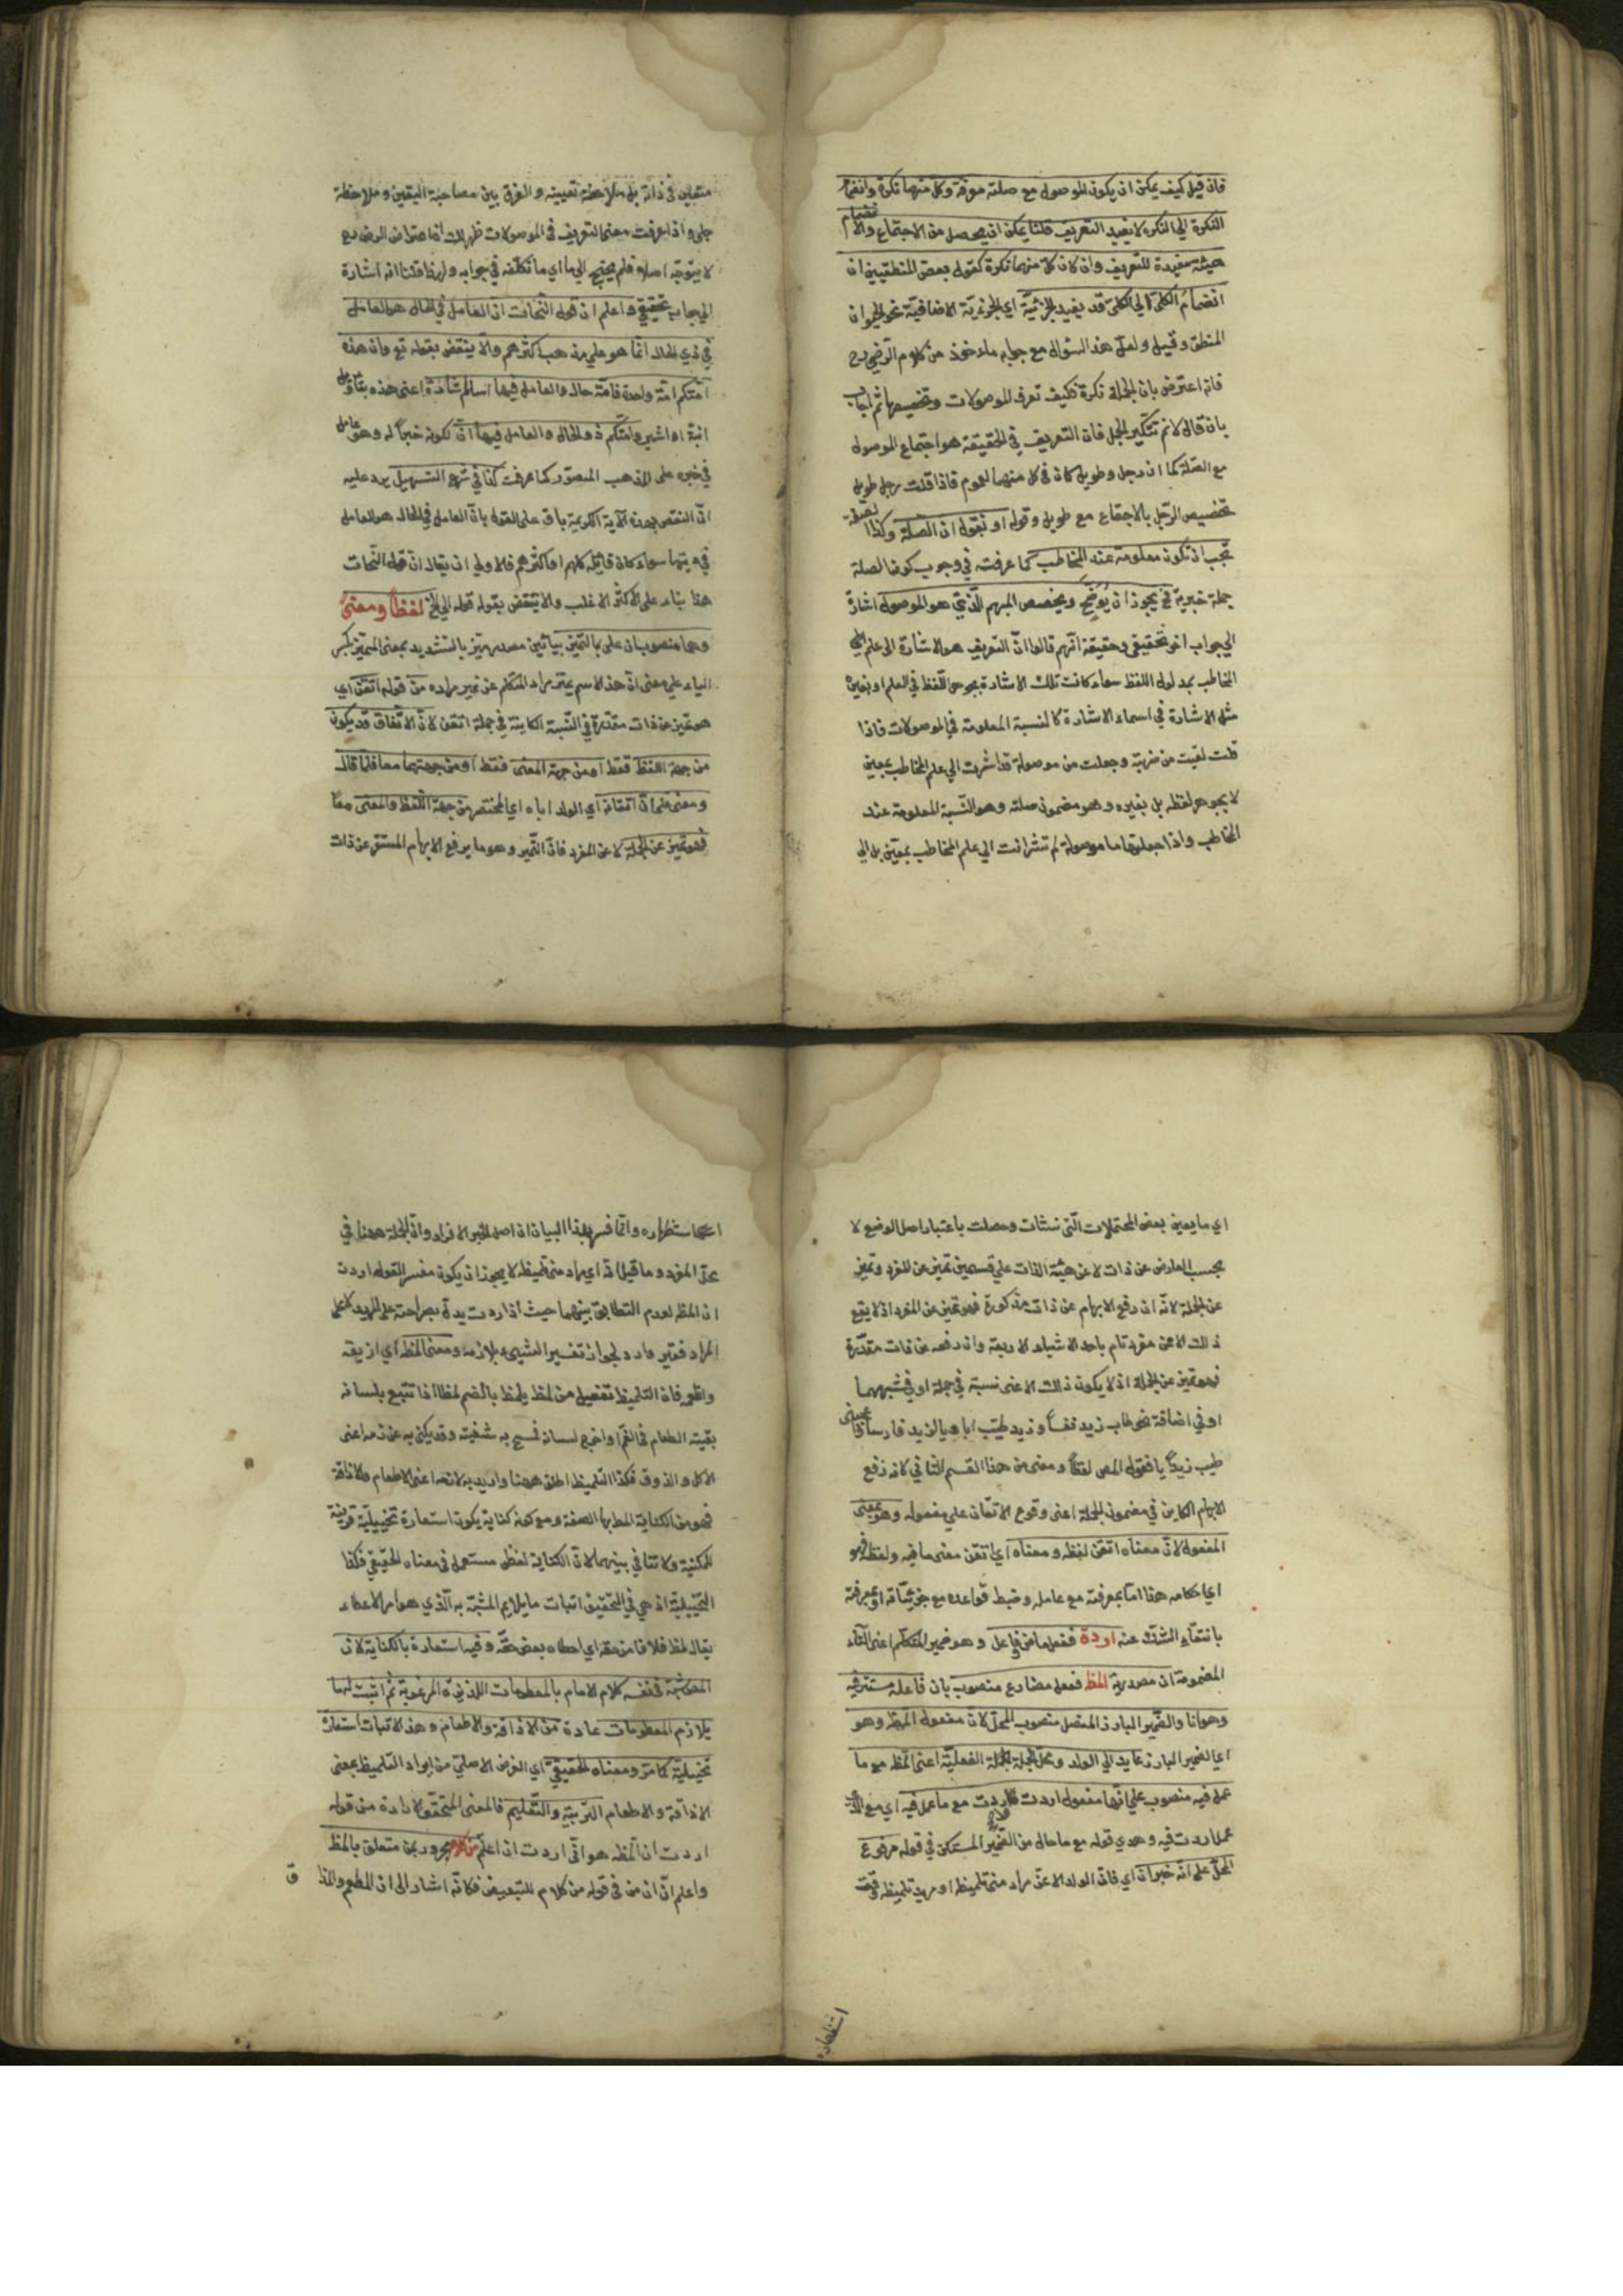 فان قيل كيف يمكن ان يكون الموصول مع صلته معرفة وكل منهما نكرة وانضمام
النكرة الي النكرة لا يفيد التعريف قلنا يمكن ان يحصل من الاجتماع والانضمام
هيئة مفيدة للتعريف وان كان كل منهما نكرة كقول بعض المنطقيين ان
انضمام الكلي الي الكلي قد يفيد الجزئية اي الجزئية الاضافية نحو الحيوان
الناطق وقيل ولعل هذا السؤال مع جوابه ماخوذ من كلام الرضي رح
فانه اعترض بان الجملة نكرة فكيف تعرف الموصولات وتخصصها ثم اجاب
بان قال لا نم تنكير الجمل فان التعريف في الحقيقة هو اجتماع الموصول
مع الصلة كما ان رجل وطويل كان في كل منهما العموم فاذا قلت رجل طويل
تخصيص الرجل بالاجتماع مع طويل وقوله او نقول ان الصلة وكذا الصفة
تجب ان تكون معلومة عند المخاطب كما عرفت في وجوب كون الصلة
جملة خبرية فيجوز ان يوضح ويخصص المبهم الذي هو الموصول اشارة
الي جواب اخر تحقيقي وحقيقة انهم قالوا ان التعريف هو الاشارة الي علم
المخاطب بمدلول اللفظ سواء كانت تلك الاشارة بجوهر اللفظ في العلم او بغيره
مثل الاشارة في اسماء الاشارة كالنسبة المعلومة في الموصولات فاذا
قلت لقيت من ضربته وجعلت من موصولة قد اشرت الي علم المخاطب بمعين
لا بجوهر لفظه بل بغيره وهو مضمون صلته وهو النسبة المعلومة عند
المخاطب واذا جعلتها ما موصولة لم تشر انت الي علم المخاطب بمعين بل الي
متعين في ذاته بل ملاحظة تعيينه والفرق بين مصاحبة اليقين وملاحظة
جلي واذا عرفت معنى التعريف في الموصولات ظهر لك ان اعتراض الرضي رح
لا يتوجه اصلا فلم يحتج الي ما اي ما تكلفه في جوابه ولهذا قلنا انه اشارة
الي جواب تحقيقي واعلم ان قول النحات ان العامل في الحال هو العامل
في ذي الحال انما هو علي مذهب اكثرهم والا ينتقض بقوله تع وان هذه
امتكم امة واحدة فامة حال والعامل فيها اسم الاشارة اعني هذه بتاويل
انبه او اشير وامتكم ذو الحال والعامل فيها ان لكونه خبرا له وهو عامل
في خبره على المذهب المنصور كما عرفت كذا في شرح التسهيل يرد عليه
ان النقض بهذه الآية الكريمة باق على القول بان العامل في الحال هو العامل
في ذيها سواء كان قائله كلهم او اكثرهم فالاولي ان يقال ان قول النحات
هذا بناء على الاكثر الاغلب والا ينتقض بقوله قوله الي الخ لفظا ومعنى
وهما منصوبان على التميز بيائين مصدر ميّز بالتشديد بمعنى المميز بكسر
الياء علي معنى ان هذا الاسم يميز مراد المتكلم عن غير مراده من قوله اتقن اي
هو تميز عن ذات مقدرة في النسبة الكاينة في جملة اتقن لان الاتفاق قد يكون
من جهة اللفظ فقط او من جهة المعنى فقط او من جهتهما معا فلما قال
ومعنى علم ان اتقانه اي الولد اياه اي المختصر من جهة اللفظ والمعنى معا
فهو تميز عن الجملة لا عن المفرد فان التميز وهو ما يرفع الابهام المستقر عن ذات
اي ما يعين بعض المحتملات التي نشات وحصلت باعتبار اصل الوضع لا
بحسب العارض عن ذات لا عن هيئة الذات علي قسمين تميز عن المفرد وتميز
عن الجملة لانه ان رفع الابهام عن ذات مذكورة فهو تميز عن المفرد اذ لا يقع
ذلك الا عن مفرد تام باحد الاشياء الاربعة وان رفعه عن ذات مقدرة
فهو تميز عن الجملة اذ لا يكون ذلك الا عن نسبة في جملة او في شبهها
او في اضافة نحو طاب زيد نفسا وزيد طيب ابا ويا لزيد فارسا
طيب زيد ابا فقول المص لفظا ومعنى من هذا القسم الثاني لانه رفع
الابهام الكاين في مضمون الجملة اعني وقوع الاتقان علي مفعوله وهو بمعنى
المفعول لان معناه اتقن لفظه ومعناه اي اتقن معنى ما فيه ولفظه فهو
اي احكامه هذا اما بمعرفته مع عامله وضبط قواعده مع جزئياته او بمعرفته
بانتفاء الشك عنه اردت فعل ماض وفاعل وهو ضمير المتكلم اعني التاء
المضمومة ان مصدرية المظ فعل مضارع منصوب بان فاعله مستتر فيه
وهو انا والضمير البارز المتصل منصوب المحل لان مفعول المظ وهو
اي الضمير البارز عايد الي الولد ومحل الجملة الفعلية اعني المظه مع ما
عمل فيه منصوب علي انها مفعول اردت فاردت مع ما عمل فيه اي مع الذي
عمل اردت فيه وهو في قوله مع ما حال من الضمير المستكن في قوله مرفوع
المحل علي انه خبر ان اي فان الولد الاعز مراد مني تلميظه او مريد تلميظه وقت
استظهاره
اعني استظهاره وانما فسر بهذا البيان ان اصل الخبر الافراد وان الجملة ههنا في
محل المفرد وما قيل ان اي مراد مني تلميظه لا يجوز ان يكون مفسر القوله اردت
ان المظه لعدم التطابق بينهما حيث اذ اردت يدل بصراحته علي المريد لا علي
المراد فغير وارد لجواز تفسير الشيء بلازمه ومعنى المظه اي اذيقه
واطعمه فان التلميظ تفعيل من لمظ يلمظ بالضم لمظا اذا تتبع بلسانه
بقية الطعام في الفم او اخرج لسانه فمسح به شفتيه وقد يكنى به عن لازمه اعني
الاكل والذوق فكذا التلميظ اطلق ههنا واريد به لازمه اعني الاطعام والاذاقة
فهو من الكناية المط بها الصفة ومع كونه كناية يكون استعارة تخييلية قرينة
للمكنية ولا تنافي بينهما لان الكناية لفظ مستعمل في معناه الحقيقي فكذا
التخييلية اذ هي في التحقيق اثبات ما يلايم المشبه به الذي هو امر الاعطاء
يقال لمظ فلانا من حقه اي اعطاه بعض حقه وفيه استعارة بالكناية لان
المص شبه في نفسه كلام الامام بالمطعومات اللذيذة المرغوبة ثم اثبت لها
ما يلازم المطعومات عادة من الاذاقة والاطعام وهذا الاثبات استعارة
تخييلية كما مر ومعناه الحقيقي اي الغرض الاصلي من ايراد التلميظ بمعنى
الاذاقة والاطعام التربية والتعليم فالمعنى المتحقق لارادة من قوله
اردت ان المظه هو اني اردت ان اعلم من كلام مجرور بمن متعلق بالمظ
واعلم ان ان من في قوله من كلام للتبعيض فكانه اشار الى ان المطعم والمذا
ق